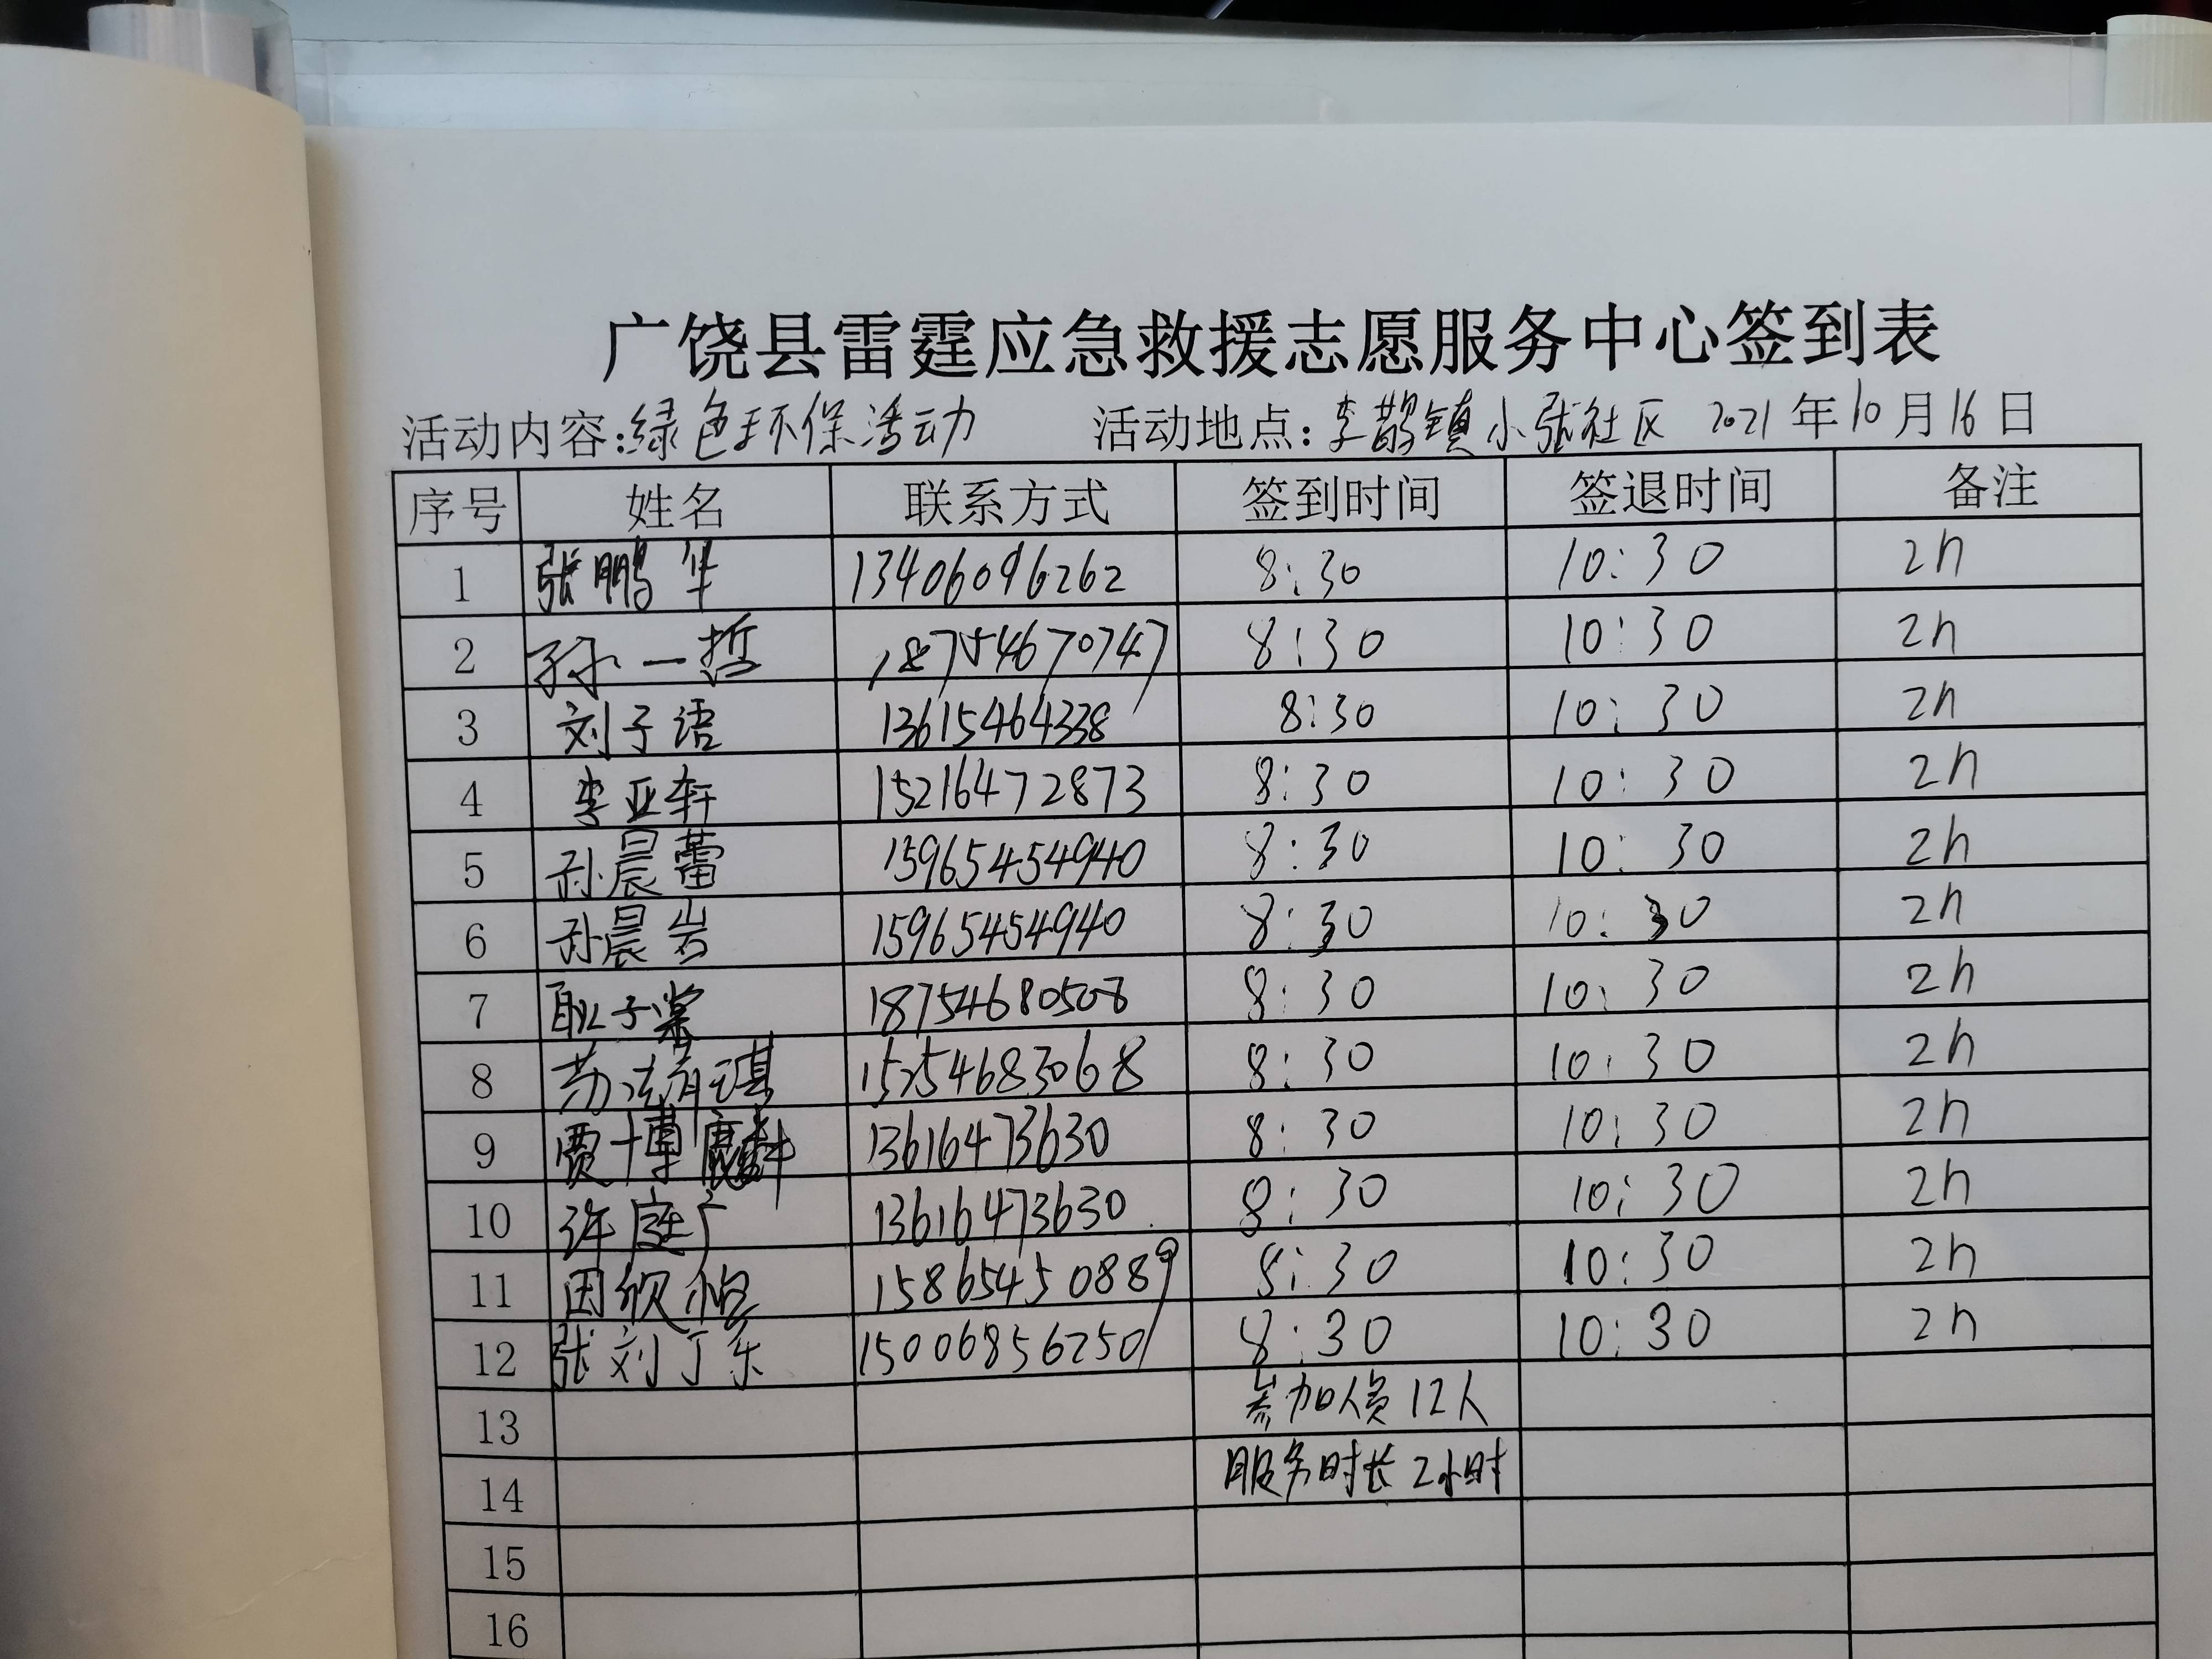 广饶县雷霆应急救援志愿服务中心签到表
活动内容:绿色环保活动 活动地点:李鹊镇小张社区 2021年10月16日
序号 姓名 联系方式 签到时间 签退时间 备注
1 张鹏华 13406096262 8:30 10:30 2h
2 孙一哲 18754670747 8:30 10:30 2h
3 刘子语 13615464338 8:30 10:30 2h
4 李亚轩 15216472873 8:30 10:30 2h
5 孙晨蕾 15965454940 8:30 10:30 2h
6 孙晨岩 15965454940 8:30 10:30 2h
7 耿子棠 18754680508 8:30 10:30 2h
8 琪 15254683068 8:30 10:30 2h
9 贾博麟 13616473630 8:30 10:30 2h
10 许庭广 13616473630 8:30 10:30 2h
11 田欣 15865450889 8:30 10:30 2h
12 张刘丁东 15006856250 8:30 10:30 2h
13 参加人员12人
14 服务时长2小时
15
16